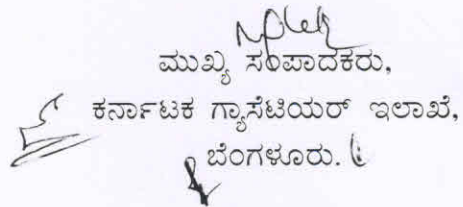 ಮುಖ್ಯ ಸಂಪಾದಕರು,
ಕರ್ನಾಟಕ ಗ್ಯಾಸೆಟಿಯರ್ ಇಲಾಖೆ,
ಬೆಂಗಳೂರು.